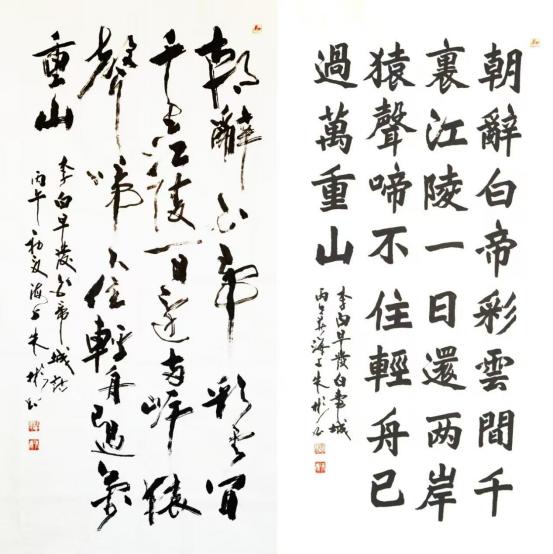 朝辭白帝彩云间
千里江陵一日還两岸猿
聲啼不住輕舟已過萬
重山
李白早發白帝城詩
丙午初夏海上朱彬书
朝辭白帝彩雲間千
裏江陵一日還两岸
猿聲啼不住輕舟已
過萬重山
李白早發白帝城
丙午海上朱彬